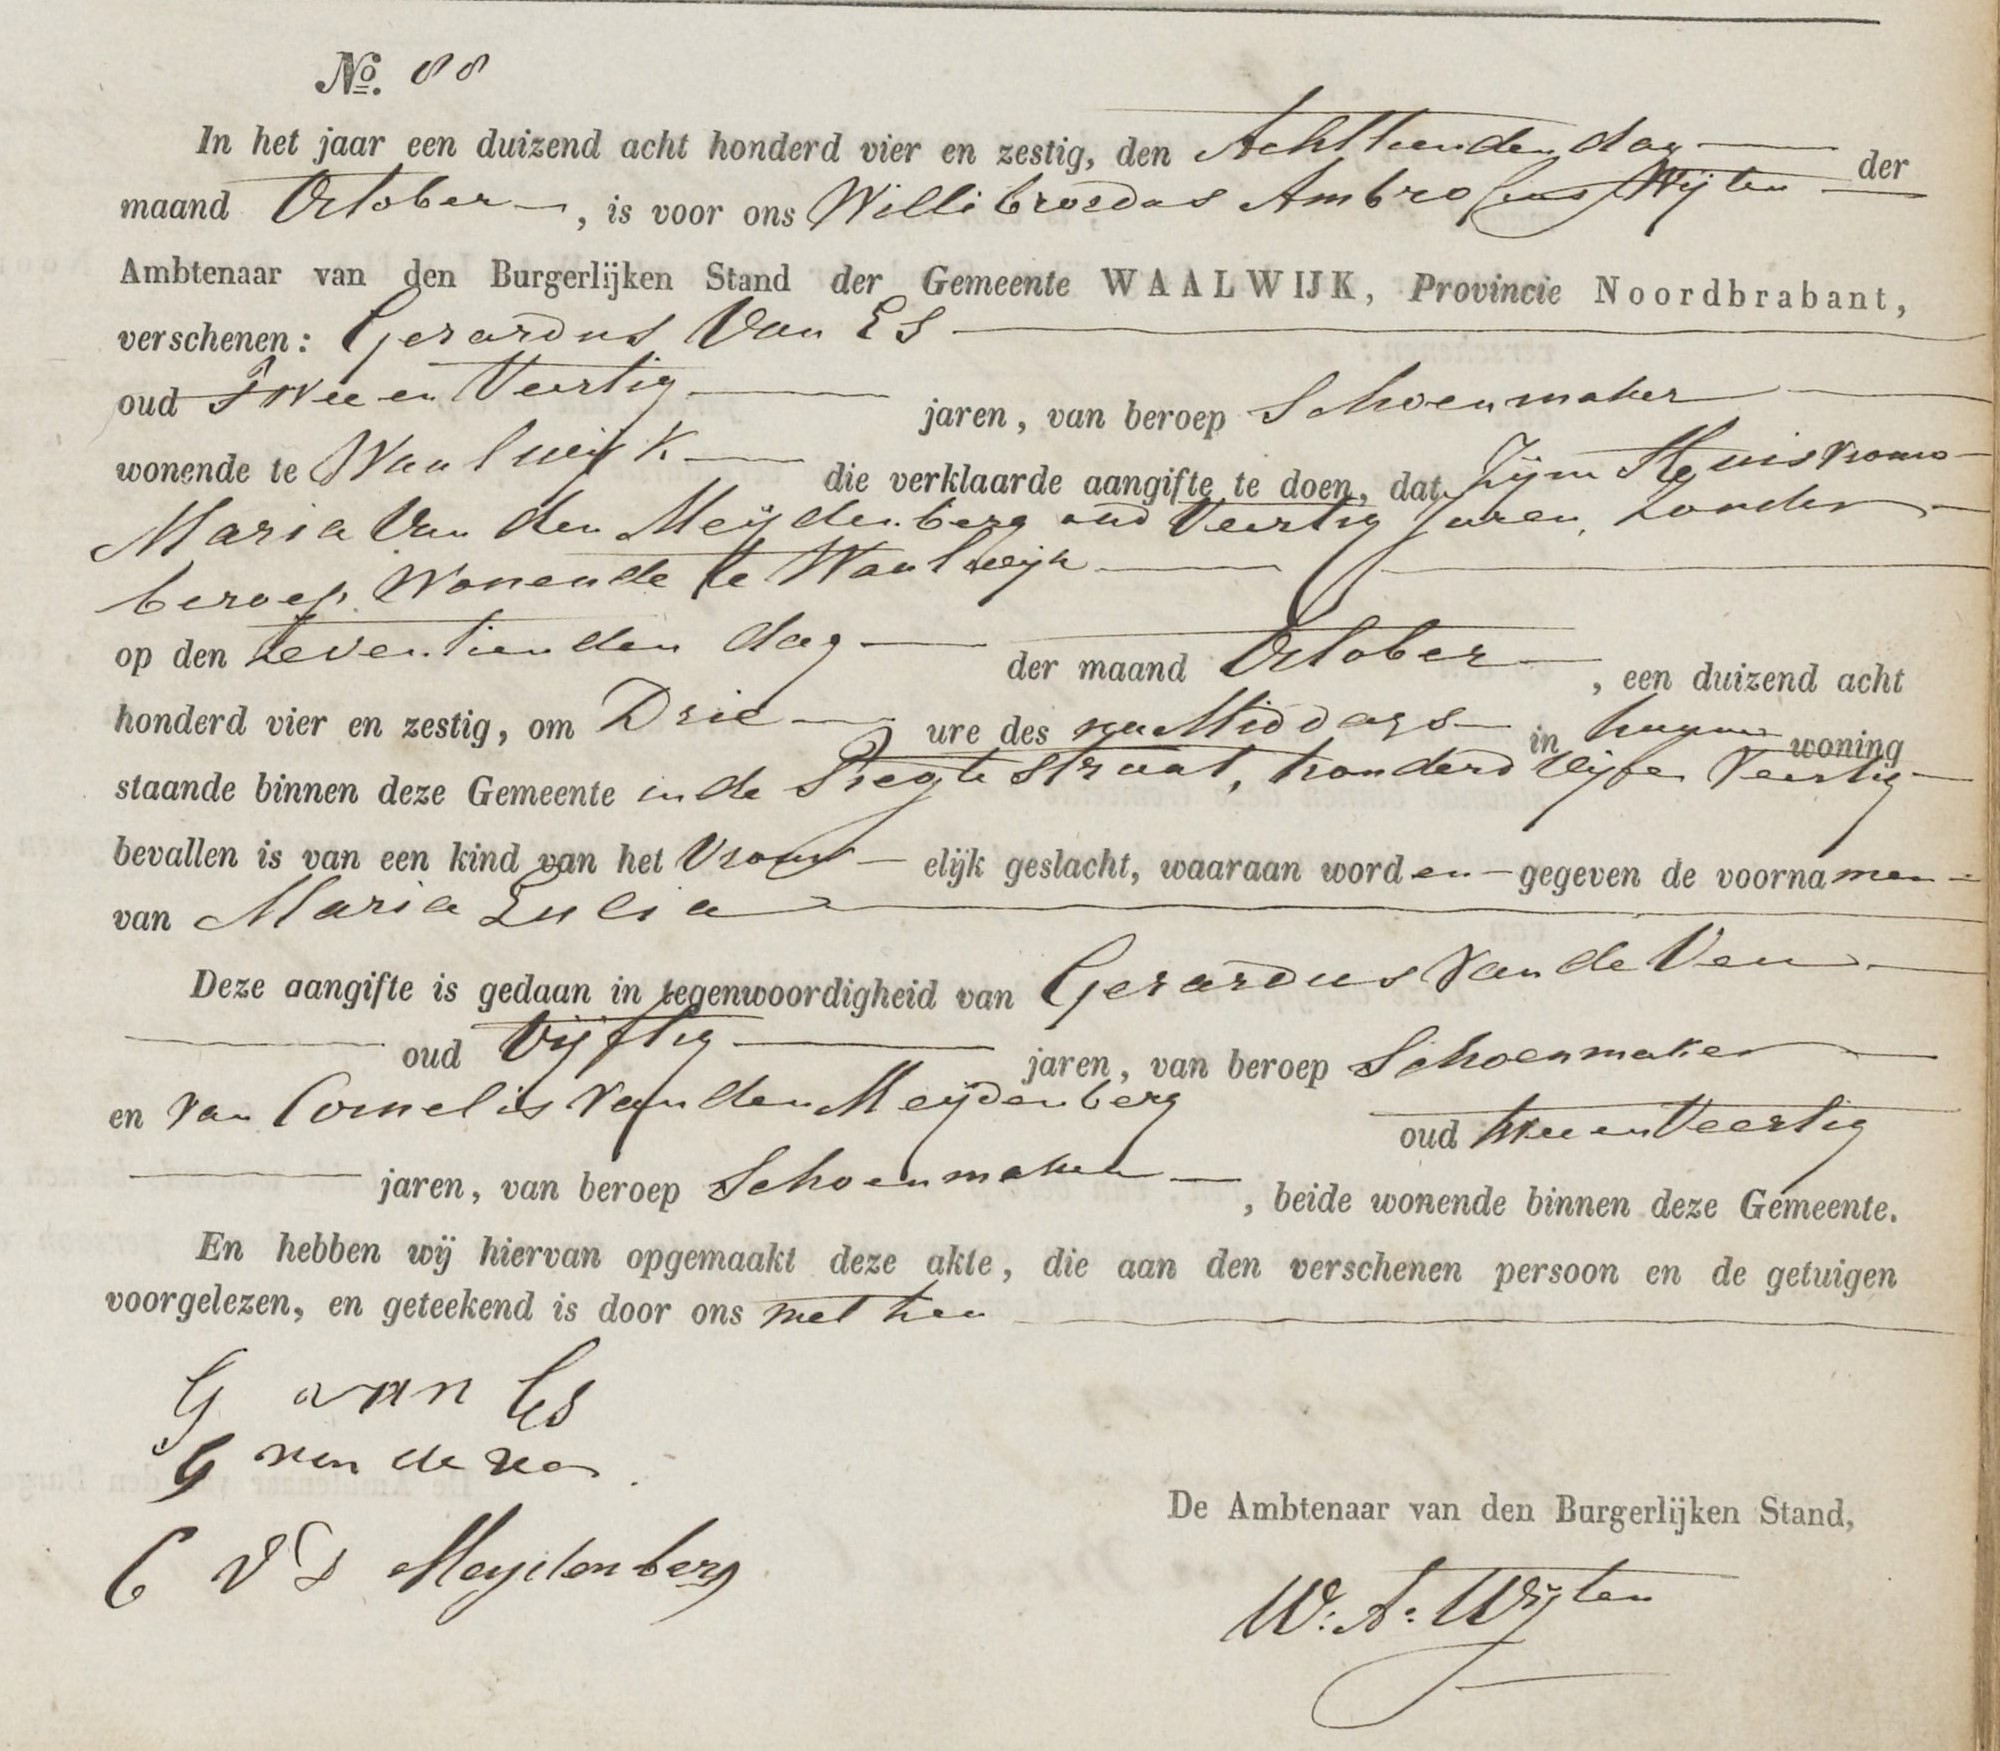 No. 88
In het jaar een duizend acht honderd vier en zestig, den Achttienden dag der
maand October, is voor ons Willibrordus Ambrosius Wijten
Ambtenaar van den Burgerlijken Stand der Gemeente WAALWIJK, Provincie Noordbrabant,
verschenen: Gerardus Van Es
oud Twee en Veertig jaren, van beroep Schoenmaker
wonende te Waalwijk die verklaarde aangifte te doen, dat Zijne Huisvrouw
Maria Van den Meijdenberg oud Veertig Jaren, Zonder
beroep, Wonende te Waalwijk
op den Zeventienden dag der maand October, een duizend acht
honderd vier en zestig, om Drie ure des na Middags in hunne woning
staande binnen deze Gemeente in de straat, honderd Vijf en Veertig
bevallen is van een kind van het Vrouw elijk geslacht, waaraan worden gegeven de voornamen
van Maria
Deze aangifte is gedaan in tegenwoordigheid van Gerardus Van de Ven
oud Vijftig jaren, van beroep Schoenmaker
en van Cornelis Van den Meijdenberg oud twee en Veertig
jaren, van beroep Schoenmaker, beide wonende binnen deze Gemeente.
En hebben wij hiervan opgemaakt deze akte, die aan den verschenen persoon en de getuigen
voorgelezen, en geteekend is door ons met hen
G van Es
G van de ven
C V D Meydenberg
De Ambtenaar van den Burgerlijken Stand,
W. A. Wijten